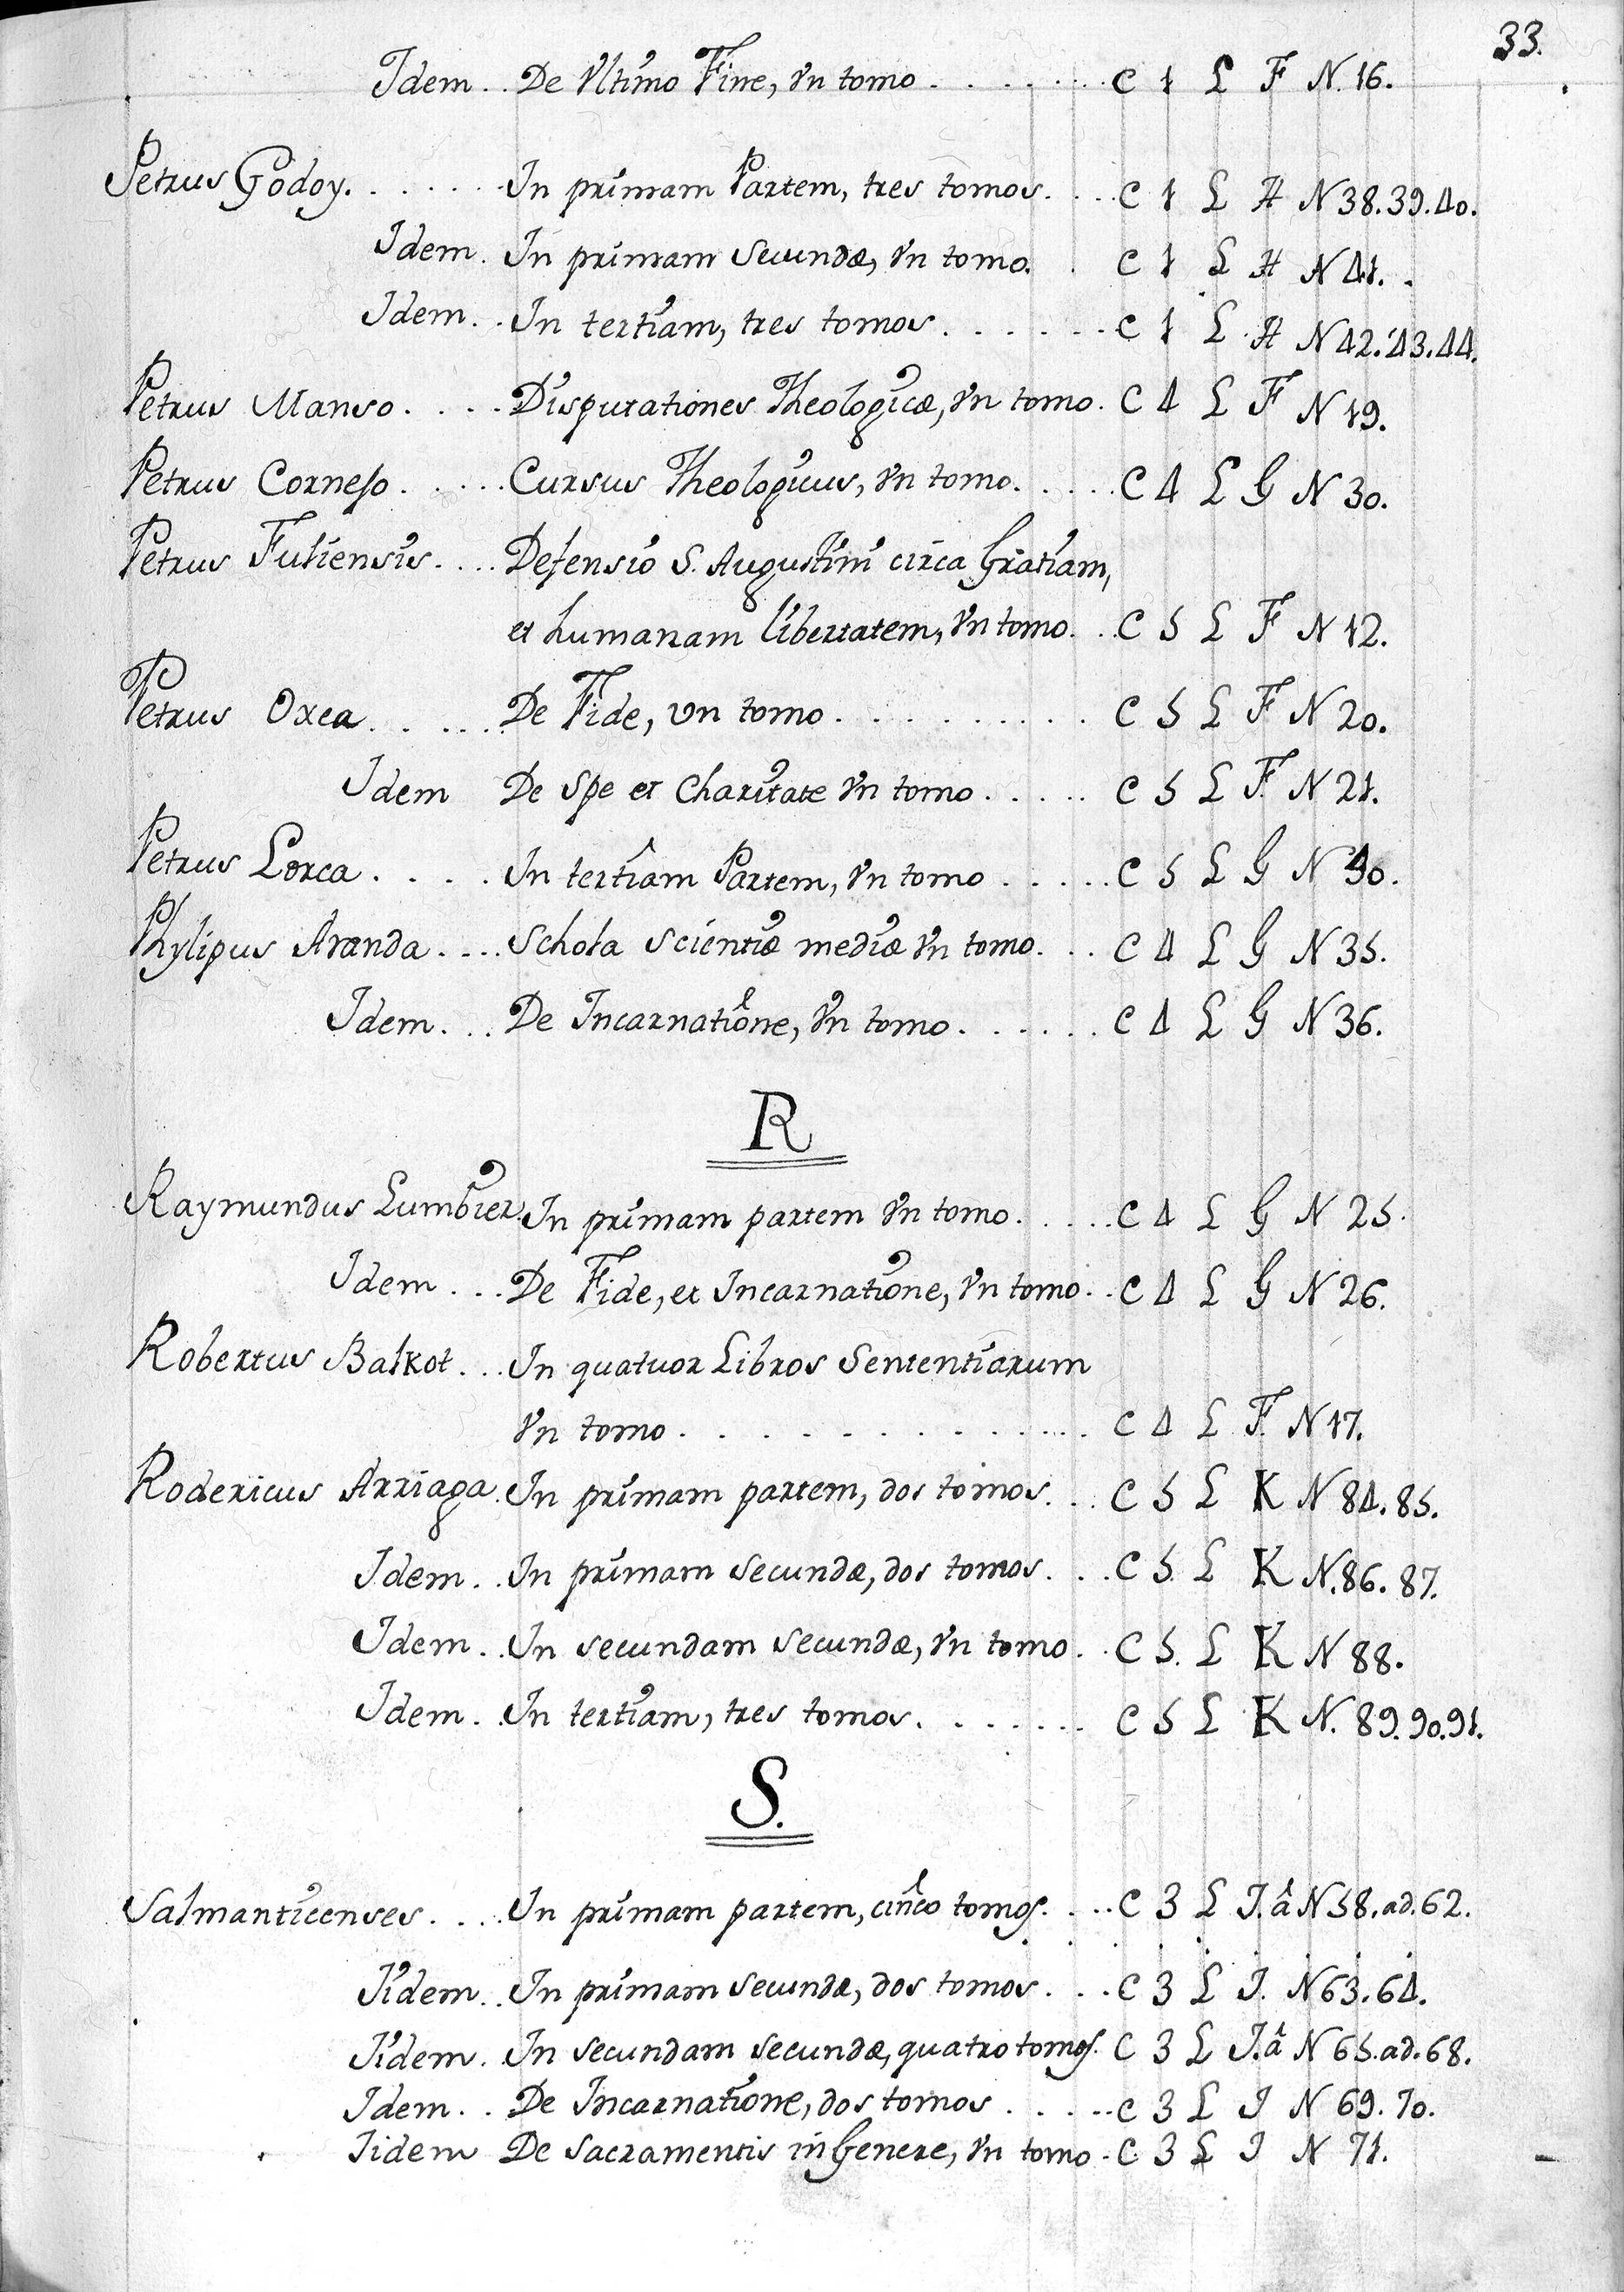 33.
Idem . . De Vltimo Fine, Vn tomo . . . . . . . C 1 L F N. 16.
Petrus Godoy. . . . . . . In primam Partem, tres tomos. . . . C 1 L H N 38. 39. 40.
Idem . In primam Secundæ, Vn tomo. . C 1 L H N 41. .
Idem . . In tertiam, tres tomos . . . . . . . C 1 L H N 42. 43. 44.
Petrus Manso . . . . Disputationes Theologicæ, Vn tomo . C 4 L F N 19.
Petrus Cornejo . . . . . Cursus Theologicus, Vn tomo. . . . . C 4 L G N 30.
Petrus Fuliensis . . . . Defensio S. Augustini circa Gratiam,
et humanam libertatem, Vn tomo. . . C 5 L F N 12.
Petrus Oxea . . . . . . De Fide, vn tomo . . . . . . . . . C 5 L F N 20.
Idem De Spe et Charitate Vn tomo . . . . . C 5 L F. N 21.
Petrus Lorca . . . . . In tertiam Partem, Vn tomo . . . . . C 5 L G N 30.
Phylipus Aranda . . . . Schola scientiæ mediæ Vn tomo. . . C 4 L G N 35.
Idem . . . De Incarnatione, Vn tomo . . . . . . C 4 L G N 36.
R
Raymundus Lumbier. In primam partem Vn tomo. . . . . C 4 L G N 25.
Idem . . . De Fide, et Incarnatione, Vn tomo . . C 4 L G N 26.
Robertus Balkot . . . In quatuor Libros Sententiarum
Vn tomo . . . . . . . . . . . . . C 4 L F. N 17.
Rodericus Arriaga. In primam partem, dos tomos. . . C 5 L K N 84. 85.
Idem . . In primam secundæ, dos tomos . . . C 5. L K N. 86. 87.
Idem . . In secundam secundæ, Vn tomo . . C 5. L K N 88.
Idem . . In tertiam, tres tomos . . . . . . . C 5 L K N. 89. 90. 91.
S.
Salmanticenses . . . . In primam partem, cinco tomos. . . . C 3 L J. â N 58. ad. 62.
Iidem . . In primam secundæ, dos tomos . . . C 3 L J. N 63. 64.
Iidem . In secundam secundæ, quatro tomos. C 3 L J. â N 65. ad. 68.
Idem . . De Incarnatione, dos tomos . . . . . C 3 L J N 69. 70.
Iidem De Sacramentis in Genere, Vn tomo . C 3 L J N 71.